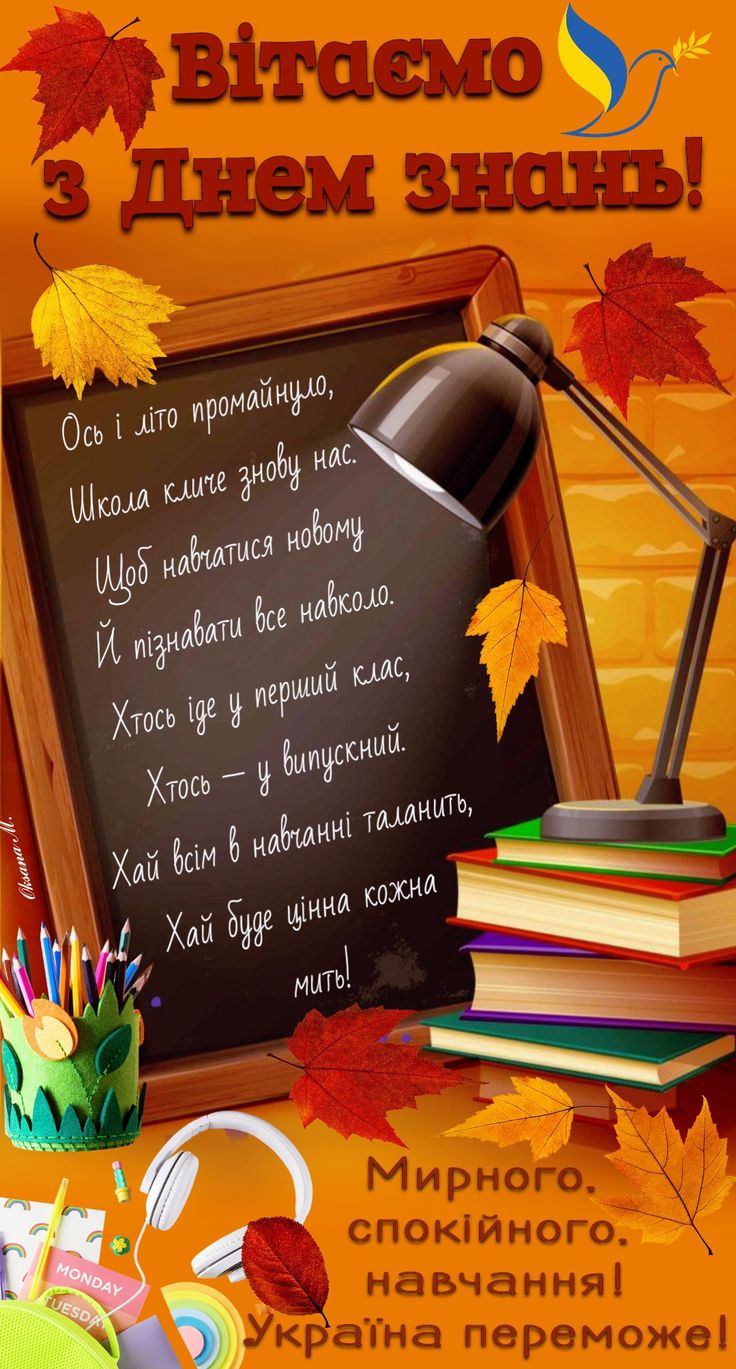 Вітаємо
з Днем знань!
Ось і літо промайнуло,
Школа кличе знову нас.
Щоб навчатися новому
Й пізнавати все навколо.
Хтось іде у перший клас,
Хтось – у випускний.
Хай всім в навчанні таланить,
Хай буде цінна кожна
мить!
Oksana M.
MONDAY
TUESDAY
Мирного,
спокійного,
навчання!
Україна переможе!